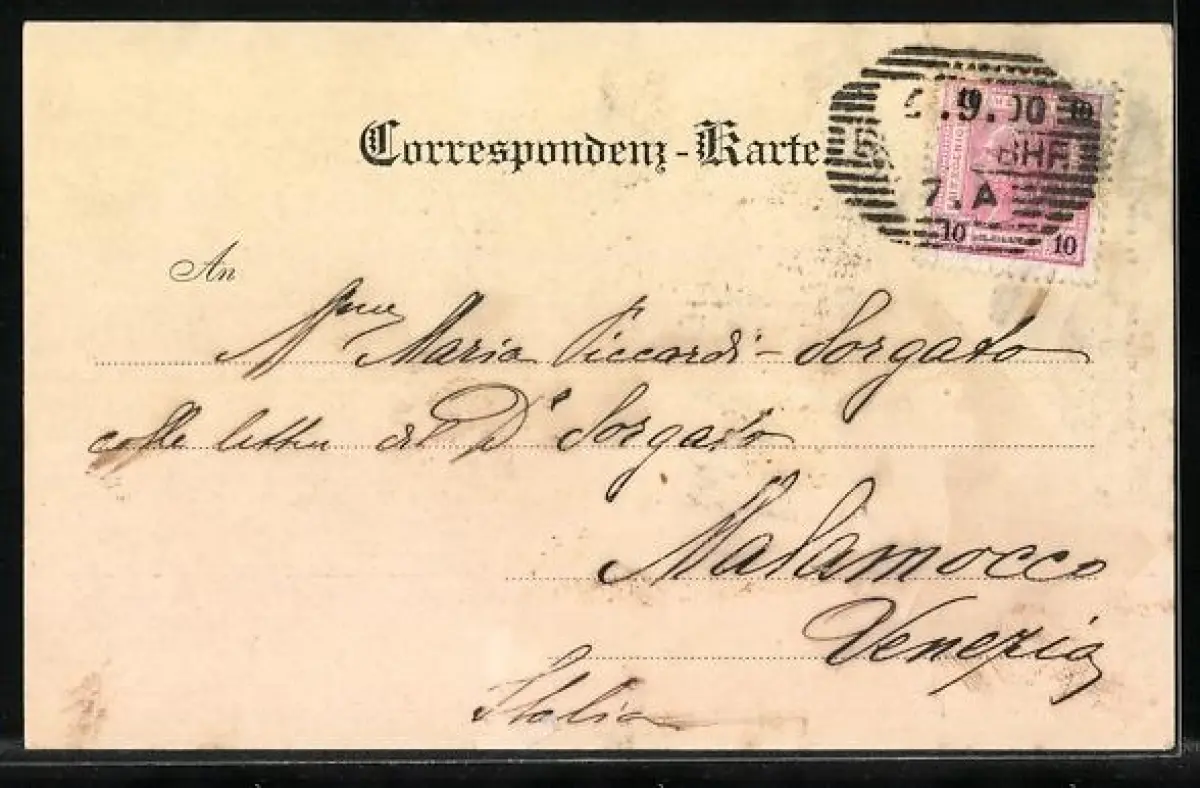 Correspondenz-Karte
.9.00
BHF
7.A
10 10
10 10
An
Mme Maria Piccardi - Sorgato
colle lettere del Dr Sorgato
Malamocco
Venezia
Italia